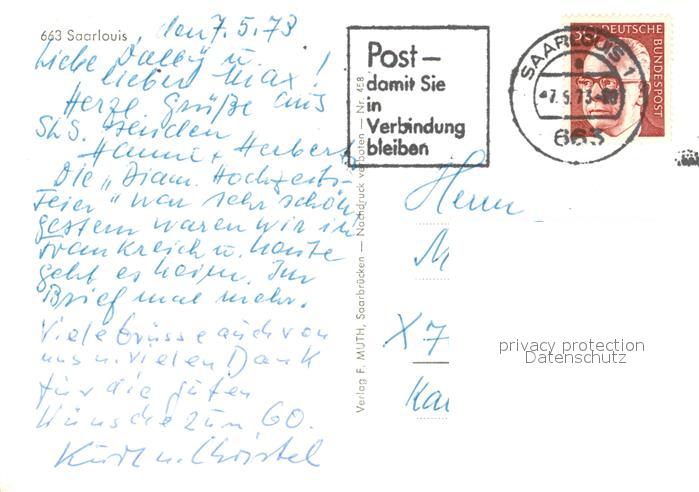 663 Saarlouis, den 7.5.73
Liebe u.
lieber Max!
Herzl. Grüße aus
Sls. senden
Hanni + Herbert
Die „Diam. Hochzeits-
Feier" war sehr schön,
gestern waren wir in
Frankreich u. heute
geht es heim. Im
Brief mal mehr.
Viele Grüsse auch von
uns u. vielen Dank
für die guten
Wünsche zum 60.
Kurt u. Christel
Verlag F. MUTH, Saarbrücken — Nachdruck verboten — Nr. 458
Post –
damit Sie
in
Verbindung
bleiben
SAARLOUIS 1
-7.5.73-
663
DEUTSCHE
BUNDESPOST
Herrn
M
X 7
Ka
privacy protection
Datenschutz